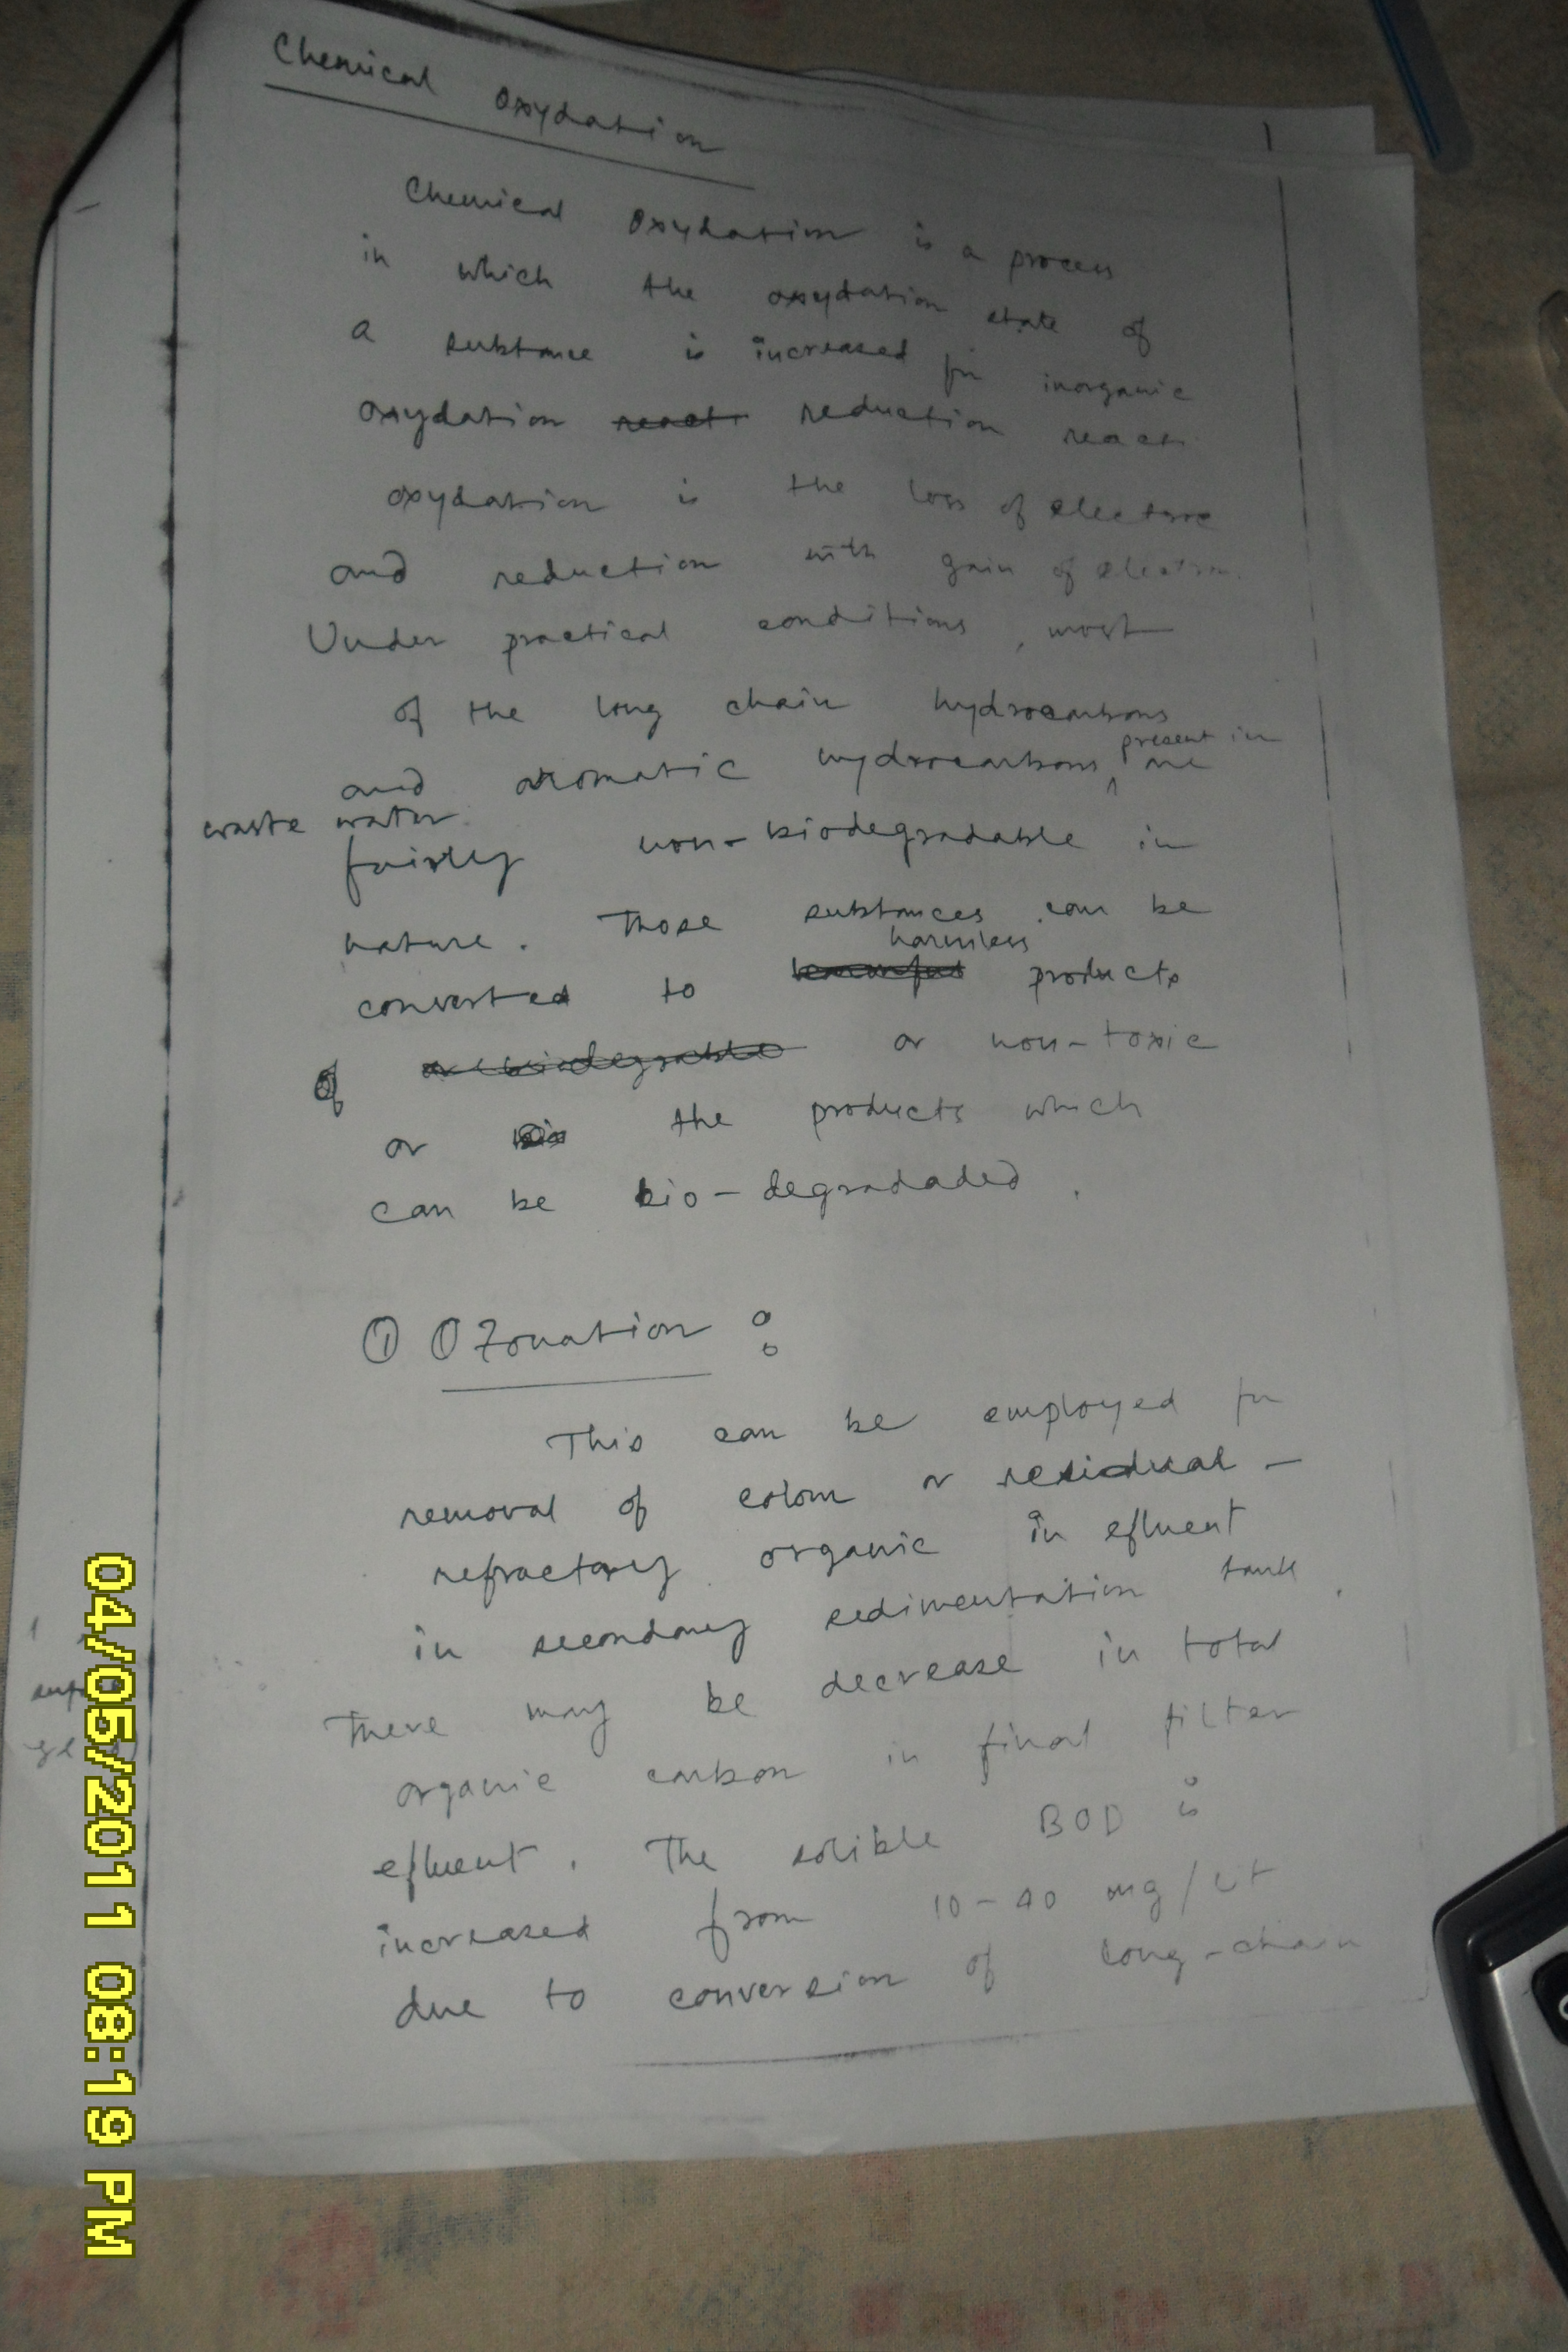 Chemical Oxydation
Chemical Oxydation is a process
in which the oxydation state of
a substance is increased for inorganic
oxydation react reduction react
oxydation is the loss of electro
and reduction with gain of electron.
Under practical conditions, most
of the long chain hydrocarbons
present in
and aromatic hydrocarbons are
waste water
fairly non-biodegradable in
nature. Those substances can be
harmless
converted to harmful products
of or biodegrable or non-toxic
or bio the products which
can be bio-degradaded.
① Ozonation :
This can be employed for
removal of colour or residual -
refractory organic in efluent
in secondary sedimentation tank.
There may be decrease in total
organic carbon in final filter
efluent. The solible BOD is
increased from 10-40 mg/Lt
due to conversion of long-chain
04/05/2011 08:19 PM